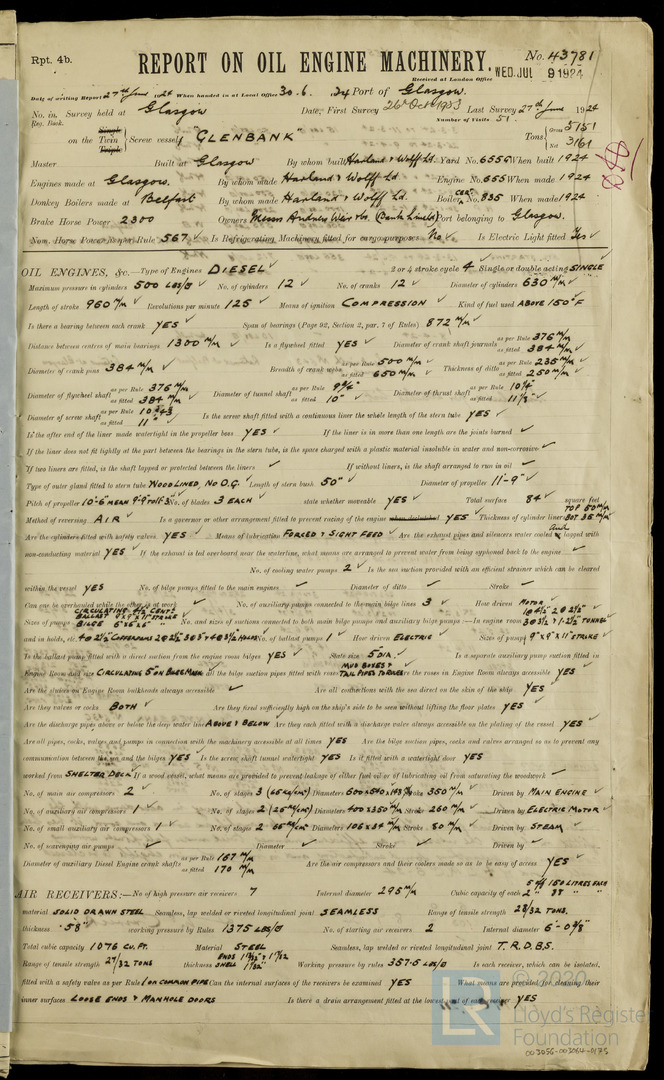 Rpt. 4b.
REPORT ON OIL ENGINE MACHINERY.
No. 43781
Received at London Office WED. JUL 9 1924
Date of writing Report 27th June 1924 When handed in at Local Office 30. 6. 24 Port of Glasgow.
No. in Survey held at Glasgow Date, First Survey 26th Oct 1923 Last Survey 27th June 1924
Reg. Book. Number of Visits 51.
on the Single Twin Triple Screw vessel "GLENBANK" Tons Gross 5151 Net 3161
Master Built at Glasgow By whom built Harland & Wolff Ld. Yard No. 655G When built 1924
Engines made at Glasgow. By whom made Harland & Wolff Ld Engine No. 655 When made 1924
Donkey Boilers made at Belfast By whom made Harland & Wolff Ld. Boiler No. 835 When made 1924
Brake Horse Power 2300 Owners Messrs Andrew Weir & Co. (Bank Line Ld) Port belonging to Glasgow.
Nom. Horse Power as per Rule 567 Is Refrigerating Machinery fitted for cargo purposes No Is Electric Light fitted Yes
OIL ENGINES, &c.—Type of Engines DIESEL 2 or 4 stroke cycle 4 Single or double acting SINGLE
Maximum pressure in cylinders 500 LBS/□" No. of cylinders 12 No. of cranks 12 Diameter of cylinders 630 M/M
Length of stroke 960 M/M Revolutions per minute 125 Means of ignition COMPRESSION Kind of fuel used ABOVE 150° F
Is there a bearing between each crank YES Span of bearings (Page 92, Section 2, par. 7 of Rules) 872 M/M
Distance between centres of main bearings 1300 M/M Is a flywheel fitted YES Diameter of crank shaft journals as per Rule 376 M/M as fitted 384 M/M
Diameter of crank pins 384 M/M Breadth of crank webs as per Rule 500 M/M as fitted 650 M/M Thickness of ditto as per Rule 235 M/M as fitted 250 M/M
Diameter of flywheel shaft as per Rule 376 M/M as fitted 384 M/M Diameter of tunnel shaft as per Rule 9¾" as fitted 10" Diameter of thrust shaft as per Rule 10¼" as fitted
Diameter of screw shaft as per Rule 10.43 as fitted 11" Is the screw shaft fitted with a continuous liner the whole length of the stern tube YES
Is the after end of the liner made watertight in the propeller boss YES If the liner is in more than one length are the joints burned
If the liner does not fit tightly at the part between the bearings in the stern tube, is the space charged with a plastic material insoluble in water and non-corrosive
If two liners are fitted, is the shaft lapped or protected between the liners If without liners, is the shaft arranged to run in oil
Type of outer gland fitted to stern tube WOOD LINED, NO O.G. Length of stern bush 50" Diameter of propeller 11-9"
Pitch of propeller 10-6" MEAN No. of blades 3 EACH state whether moveable YES Total surface 84 square feet
Method of reversing AIR Is a governor or other arrangement fitted to prevent racing of the engine when declutched YES Thickness of cylinder liners TOP 50 M/M BOT. 35 M/M
Are the cylinders fitted with safety valves YES Means of lubrication FORCED & SIGHT FEED Are the exhaust pipes and silencers water cooled or lagged with
non-conducting material YES If the exhaust is led overboard near the waterline, what means are arranged to prevent water from being syphoned back to the engine
No. of cooling water pumps 2 Is the sea suction provided with an efficient strainer which can be cleared
within the vessel YES No. of bilge pumps fitted to the main engines Diameter of ditto Stroke
Can one be overhauled while the other is at work No. of auxiliary pumps connected to the main bilge lines 3 How driven MOTOR
Sizes of pumps CIRCULATING BALLAST 9"x9"x11" STROKE BILGE 6"x6"x6" No. and sizes of suctions connected to both main bilge pumps and auxiliary bilge pumps:—In engine room
and in holds, etc. No. of ballast pumps 1 How driven ELECTRIC Sizes of pumps 9"x9"x11" STROKE
Is the ballast pump fitted with a direct suction from the engine room bilges YES State size 5" DIA. Is a separate auxiliary pump suction fitted in
Engine Room and size CIRCULATING 5" ON BILGE MAIN all the bilge suction pipes fitted with roses MUD BOXES & TAIL PIPES Are the roses in Engine Room always accessible YES
Are the sluices on Engine Room bulkheads always accessible Are all connections with the sea direct on the skin of the ship YES
Are they valves or cocks BOTH Are they fixed sufficiently high on the ship's side to be seen without lifting the floor plates YES
Are the discharge pipes above or below the deep water line ABOVE & BELOW Are they each fitted with a discharge valve always accessible on the plating of the vessel YES
Are all pipes, cocks, valves and pumps in connection with the machinery accessible at all times YES Are the bilge suction pipes, cocks and valves arranged so as to prevent any
communication between the sea and the bilges YES Is the screw shaft tunnel watertight YES Is it fitted with a watertight door YES
worked from SHELTER DECK If a wood vessel, what means are provided to prevent leakage of either fuel oil or of lubricating oil from saturating the woodwork
No. of main air compressors 2 No. of stages 3 (65 KG/CM²) Diameters Stroke 350 M/M Driven by MAIN ENGINE
No. of auxiliary air compressors 1 No. of stages 2 (25 KG/CM²) Diameters 400 x 350 M/M Stroke 260 M/M Driven by ELECTRIC MOTOR
No. of small auxiliary air compressors 1 No. of stages 2 Diameters 106 x 34 M/M Stroke 80 M/M Driven by STEAM
No. of scavenging air pumps Diameter Stroke Driven by
Diameter of auxiliary Diesel Engine crank shafts as per Rule 167 M/M as fitted 170 M/M Are the air compressors and their coolers made so as to be easy of access YES
AIR RECEIVERS:—No. of high pressure air receivers 7 Internal diameter 295 M/M Cubic capacity of each 5 @ 150 LITRES EACH
material SOLID DRAWN STEEL Seamless, lap welded or riveted longitudinal joint SEAMLESS Range of tensile strength 28/32 TONS.
thickness .58" working pressure by Rules 1375 LBS/□" No. of starting air receivers 2 Internal diameter 6'-0⅜"
Total cubic capacity 1076 CU. FT. Material STEEL Seamless, lap welded or riveted longitudinal joint T.R.D.B.S.
Range of tensile strength 27/32 TONS thickness ENDS SHELL Working pressure by rules 357.5 LBS/□" Is each receiver, which can be isolated,
fitted with a safety valve as per Rule 1 ON COMMON PIPE Can the internal surfaces of the receivers be examined YES What means are provided for cleaning their
inner surfaces LOOSE ENDS & MANHOLE DOORS Is there a drain arrangement fitted at the lowest part of each receiver YES
© 2020
LR
Lloyd's Register
Foundation
003056-003064-0173